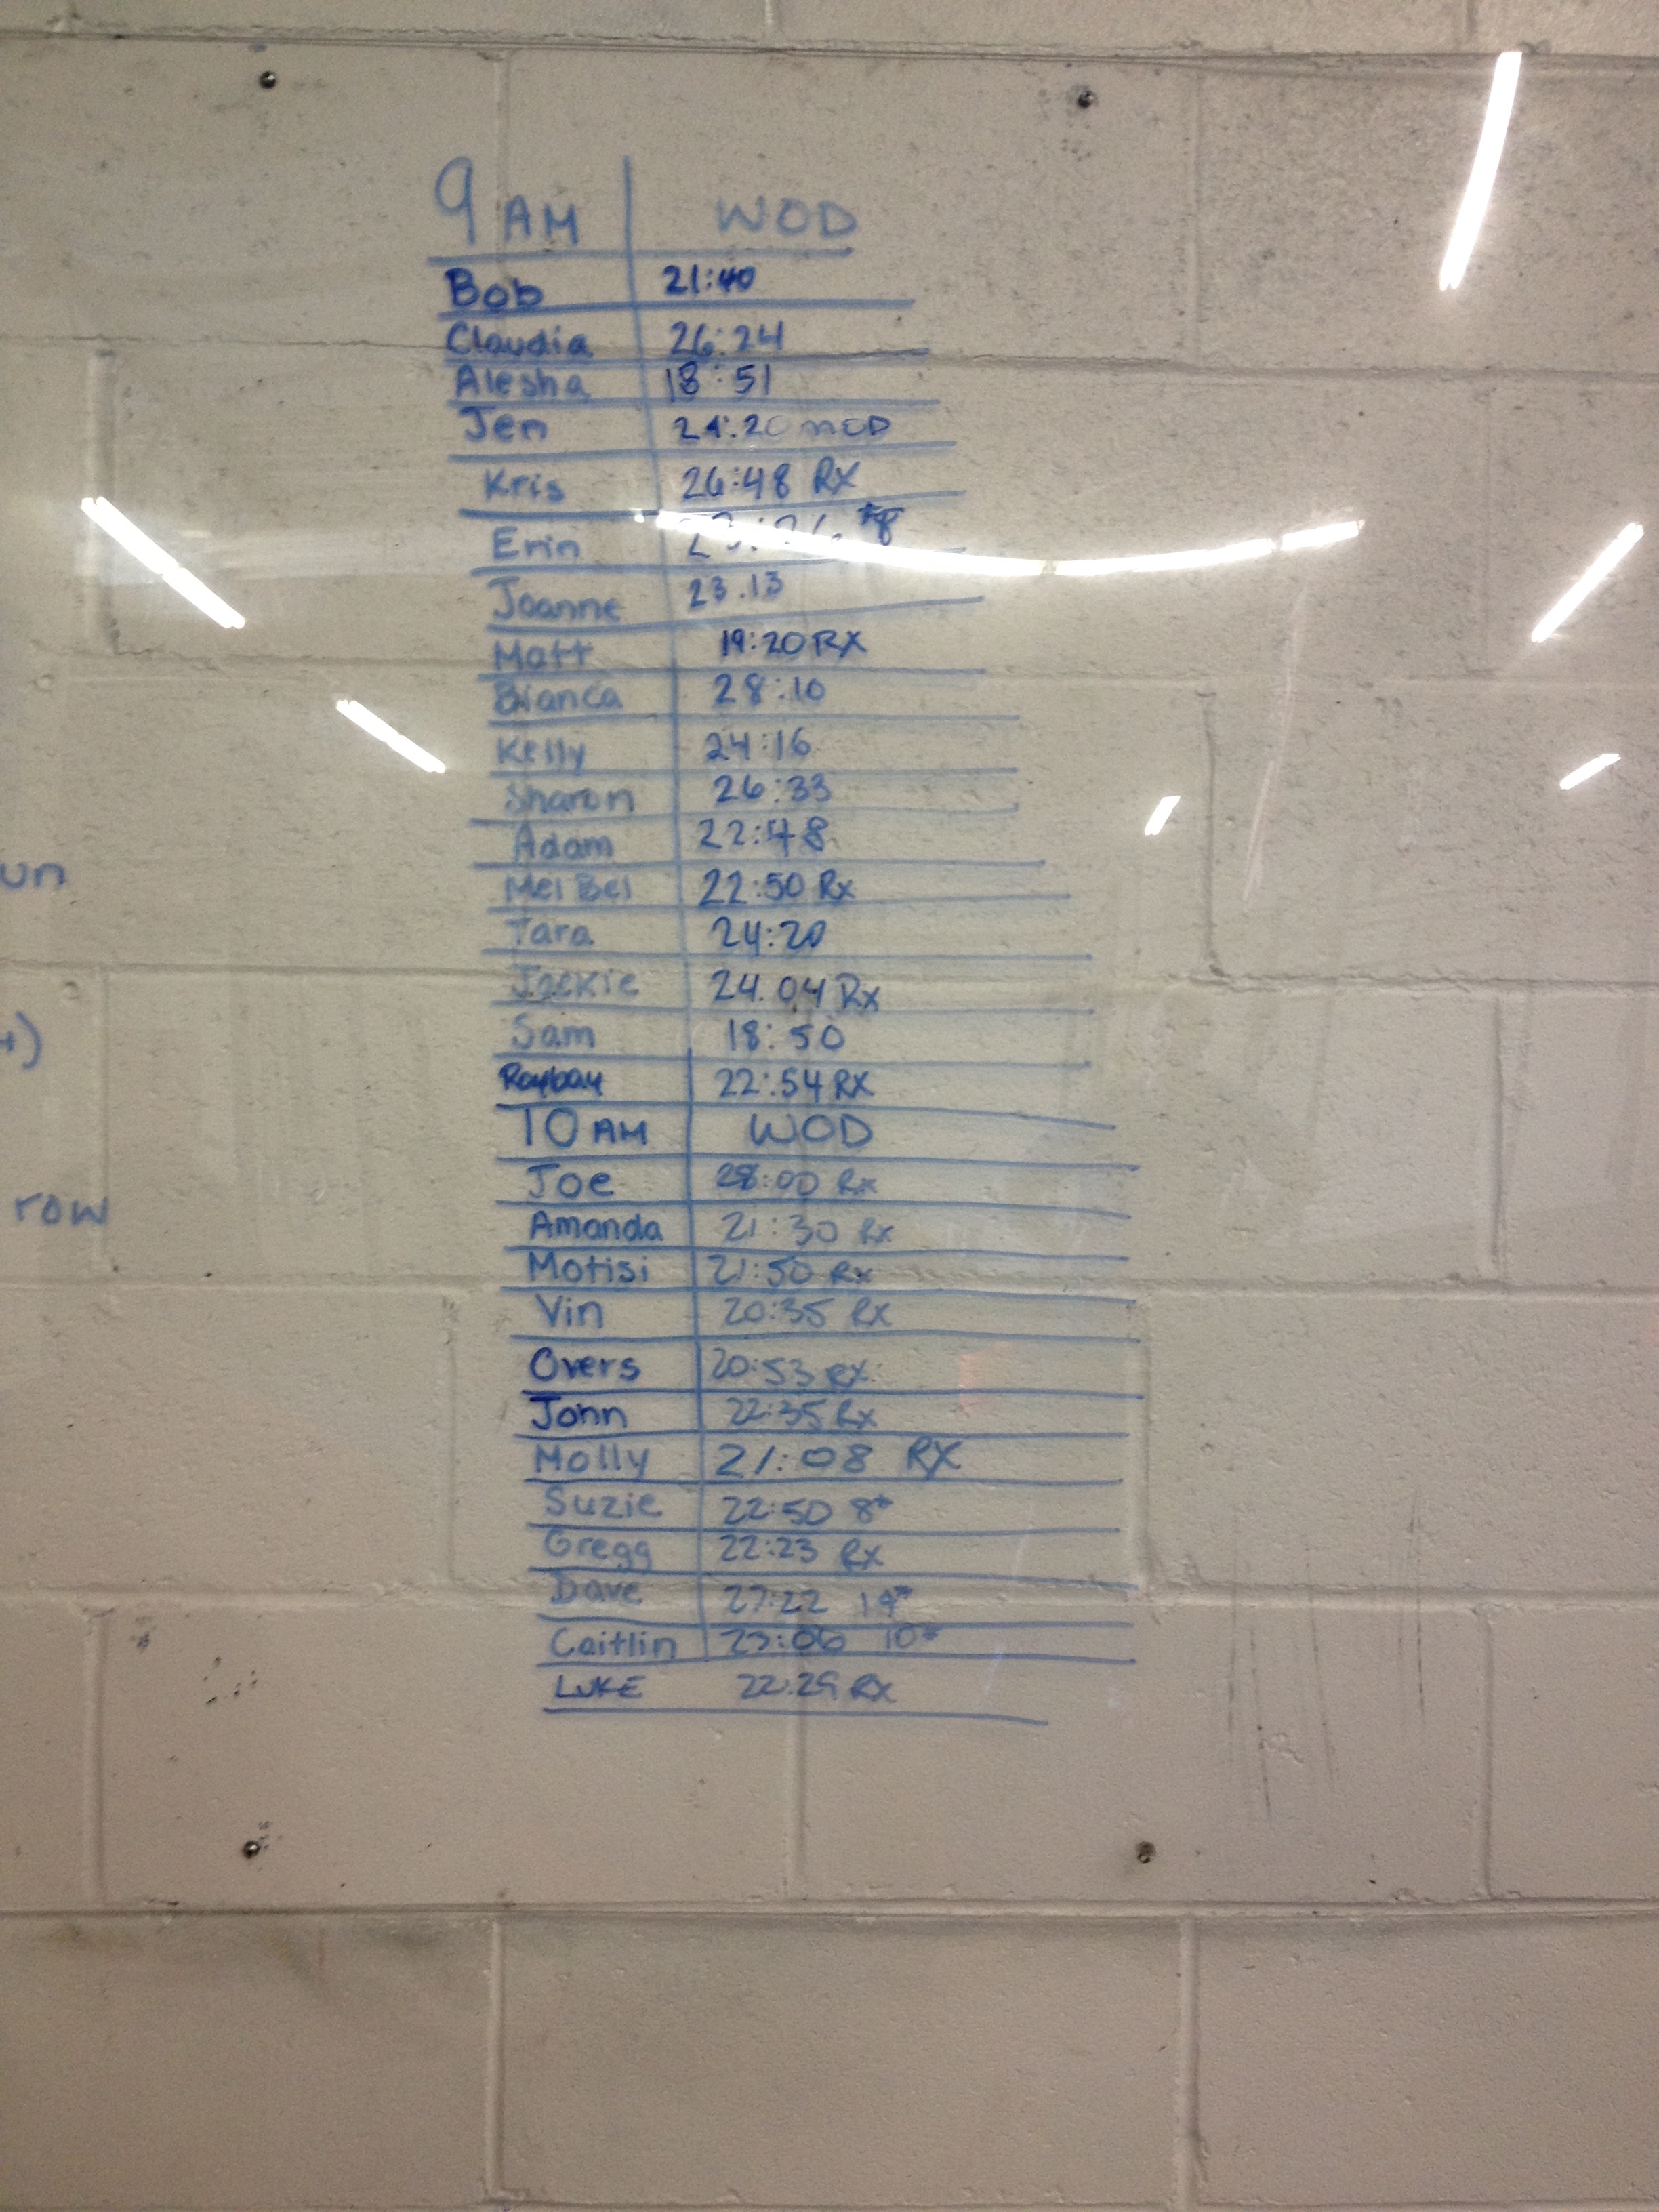 9 AM WOD
Bob 21:40
Claudia 26:24
Alesha 18:51
Jen 24:20 mOD
Kris 26:48 RX
Erin
Joanne 23.13
Matt 19:20 RX
Bianca 28:10
Kelly 24:16
Sharon 26:33
Adam 22:48
Mel Bel 22:50 Rx
Tara 24:20
Jackie 24.04 Rx
Sam 18:50
Raybay 22:54 RX
10 AM WOD
Joe 28:00 Rx
Amanda 21:30 Rx
Motisi 21:50 Rx
Vin 20:35 Rx
Overs 20:53 RX
John 22:35 Rx
Molly 21:08 RX
Suzie 22:50 8#
Gregg 22:23 Rx
Dave 27:22 14#
Caitlin 10#
LUKE 22:29 RX
un
row